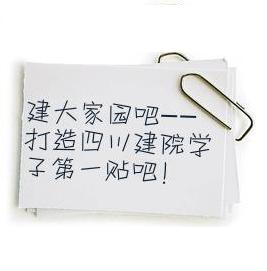 建大家园吧——
打造四川建院学
子第一贴吧！